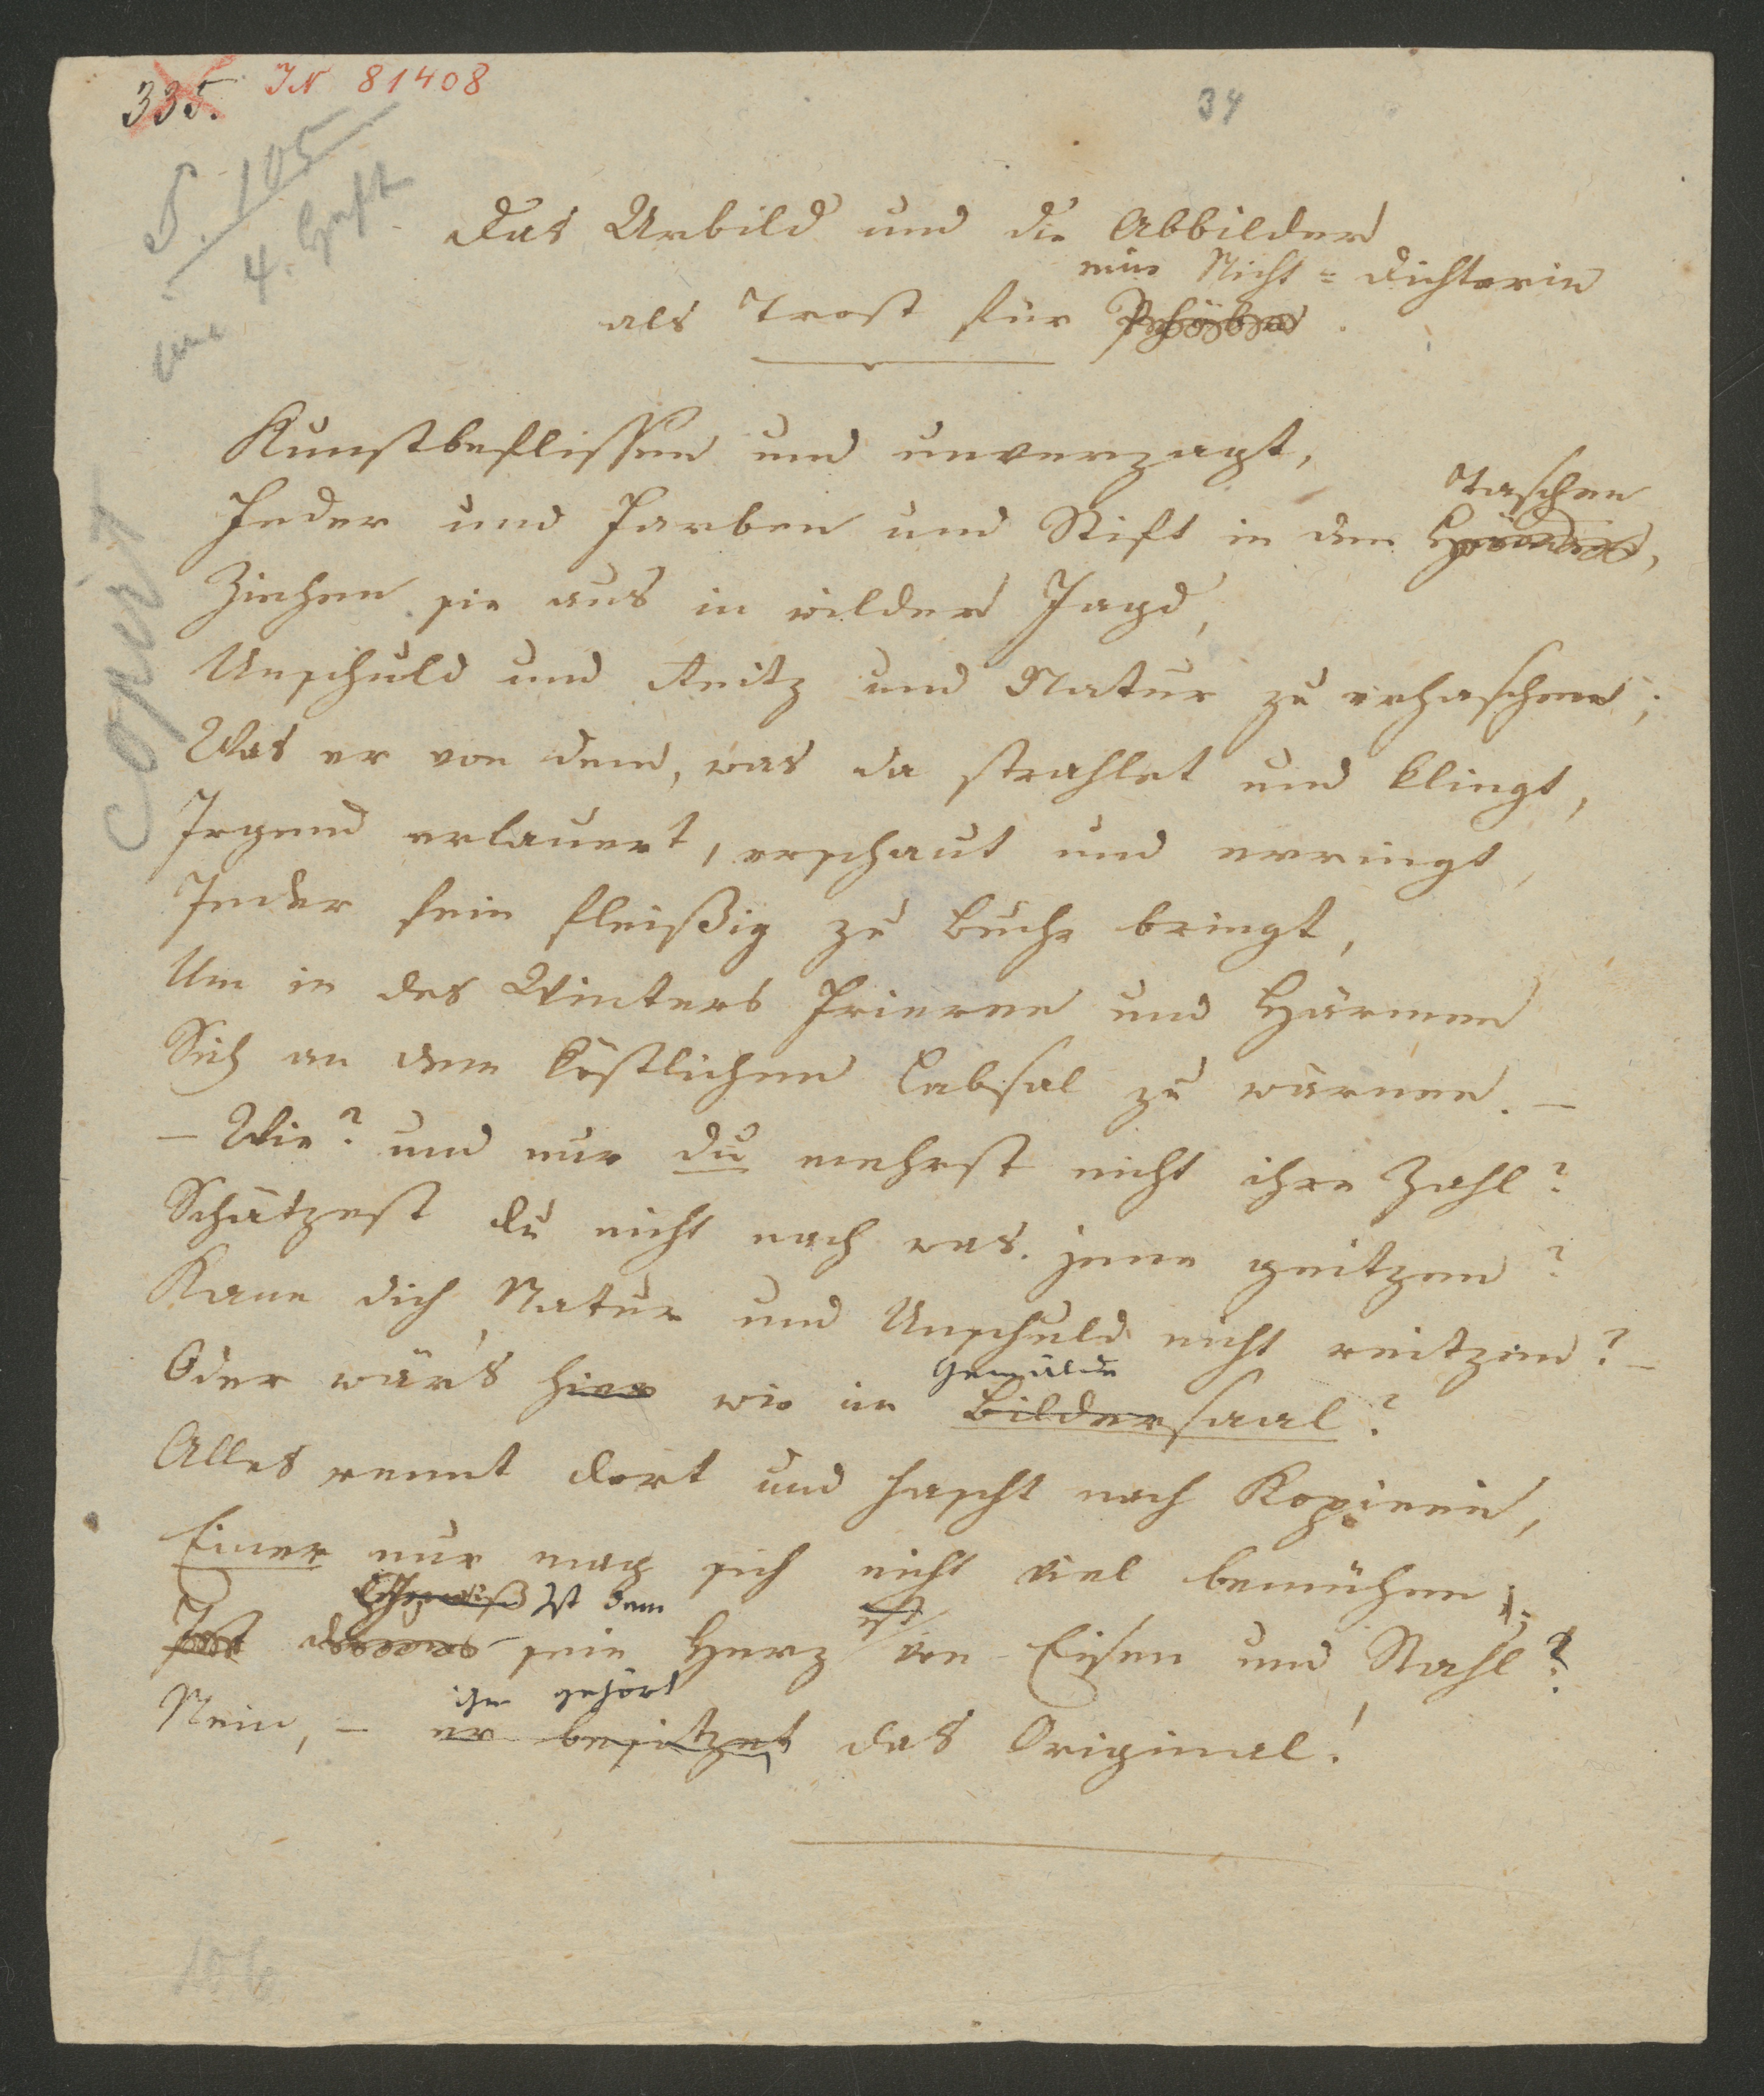 335. IN 81408
34
S. 105
4. Heft
Copirt
Das Urbild und die Abbilder
eine Nicht=Dichterin
als Trost für
Kunstbeflissen und unverzagt,
Taschen
Feder und Farben und Stift in den Händen,
Ziehen sie aus in wilder Jagd,
Unschuld und Reitz und Natur zu erhaschen;
Was er von dem, was da strahlet und klingt,
Irgend erlauert, erschaut und erringt,
Jeder fein fleißig zu Buche bringt,
Um in des Winters Frieren und Härmen
Sich an dem köstlichen Labsal zu wärmen. –
– Wie? und nur du mehrst nicht ihre Zahl?
Schätzest du nicht nach was jene geitzen?
Kann dich Natur und Unschuld nicht reitzen? –
Gemälde
Oder wär's hier wie im Bildersaal?
Alles rennt dort und hascht nach Kopieen,
Einer nur mag sich nicht viel bemühen;
Ist denn
ist
sein Herz von Eisen und Stahl?
ihm gehört
Nein, – er besitzet das Original!
106